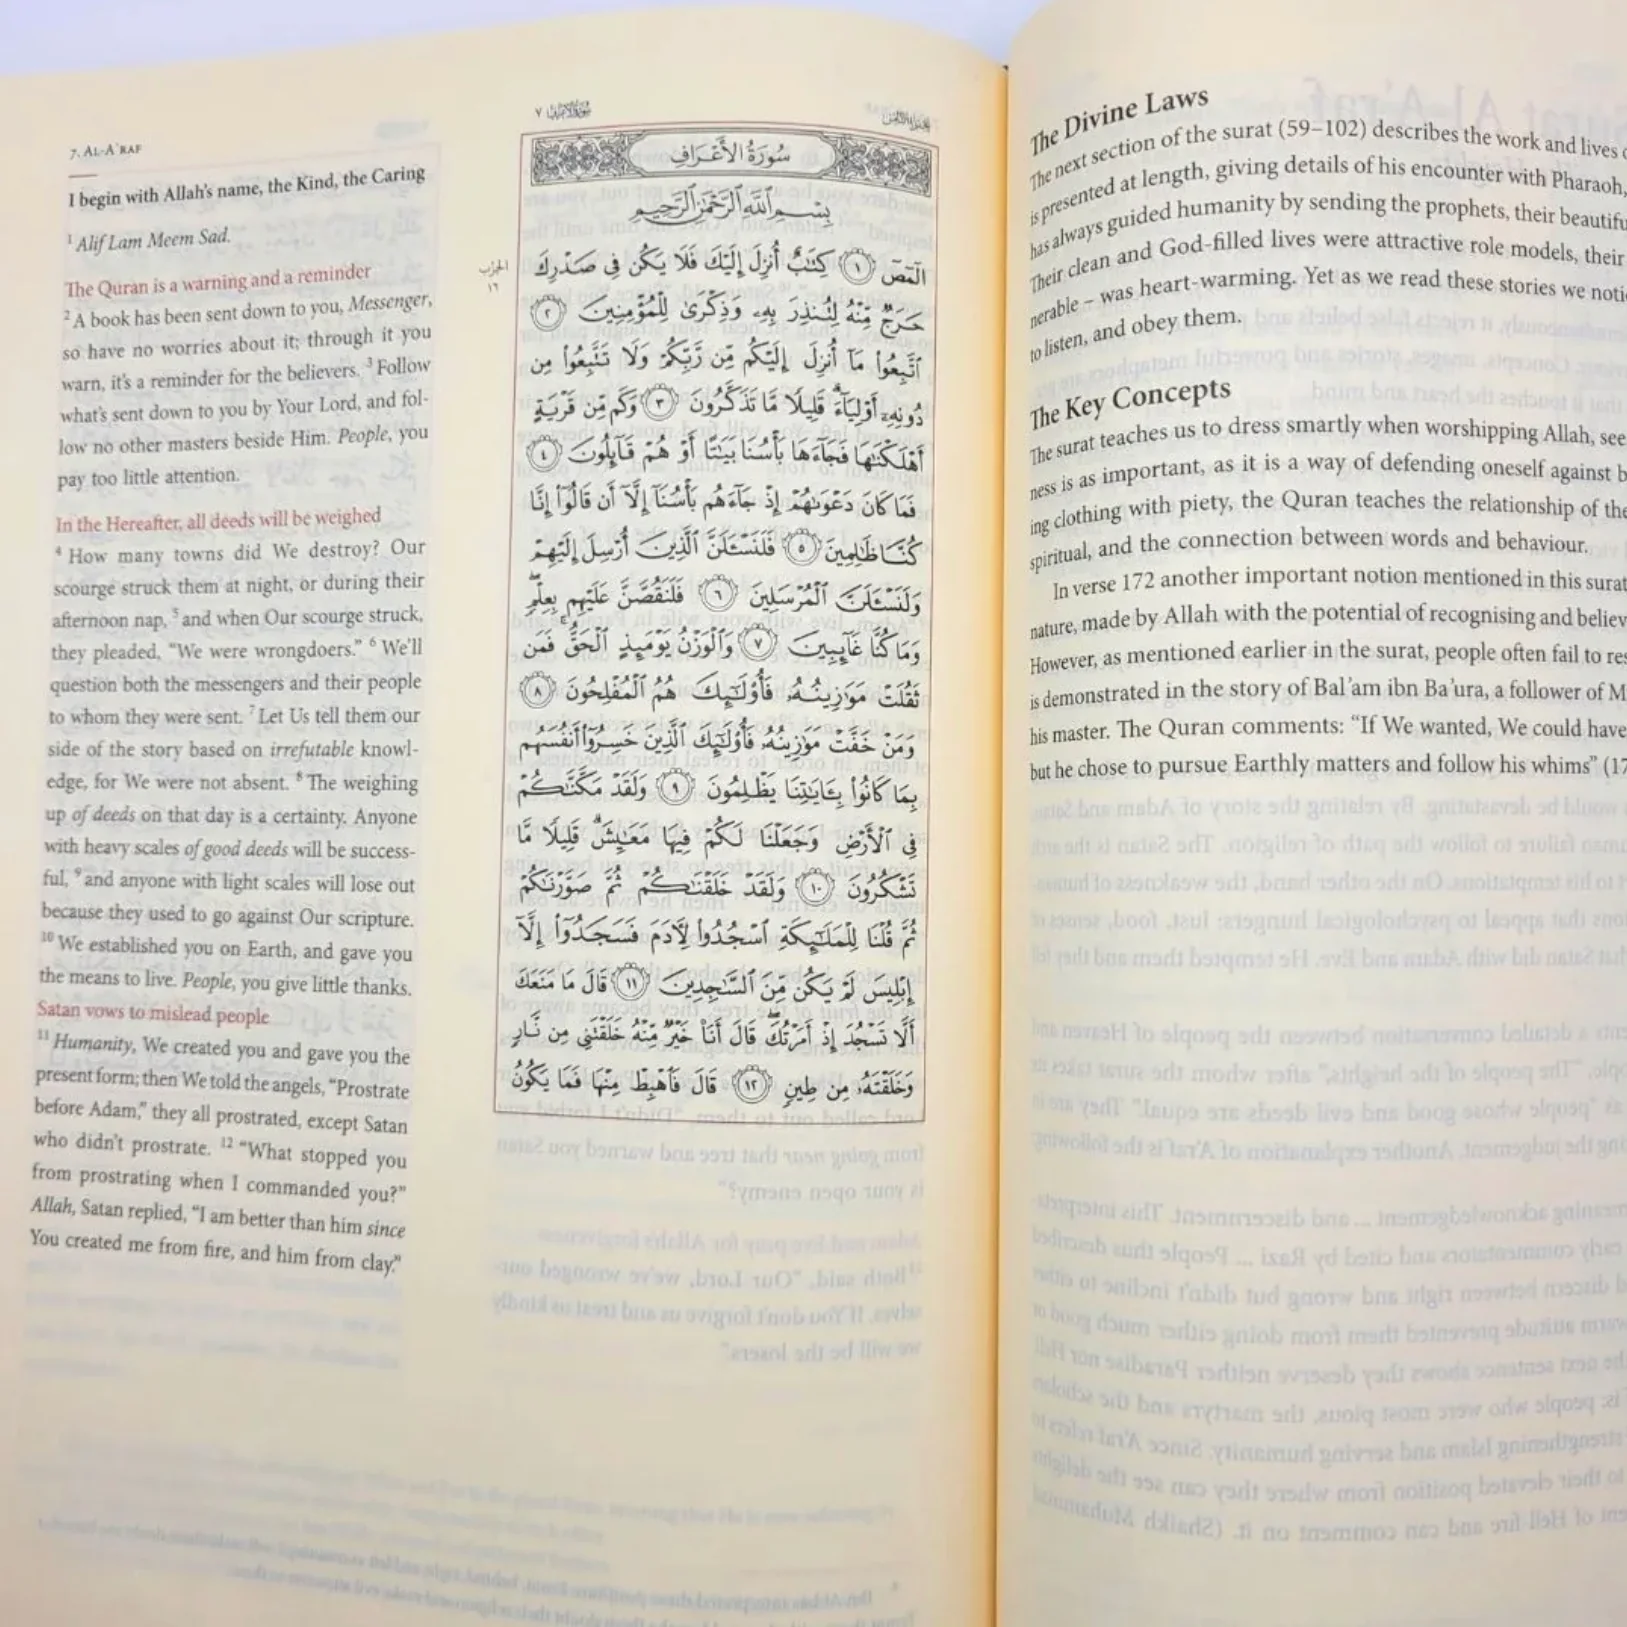 7. AL-A'RAF
I begin with Allah's name, the Kind, the Caring
1 Alif Lam Meem Sad.
The Quran is a warning and a reminder
2 A book has been sent down to you, Messenger,
so have no worries about it; through it you
warn, it's a reminder for the believers. 3 Follow
what's sent down to you by Your Lord, and fol-
low no other masters beside Him. People, you
pay too little attention.
In the Hereafter, all deeds will be weighed
4 How many towns did We destroy? Our
scourge struck them at night, or during their
afternoon nap, 5 and when Our scourge struck,
they pleaded, "We were wrongdoers." 6 We'll
question both the messengers and their people
to whom they were sent. 7 Let Us tell them our
side of the story based on irrefutable knowl-
edge, for We were not absent. 8 The weighing
up of deeds on that day is a certainty. Anyone
with heavy scales of good deeds will be success-
ful, 9 and anyone with light scales will lose out
because they used to go against Our scripture.
10 We established you on Earth, and gave you
the means to live. People, you give little thanks.
Satan vows to mislead people
11 Humanity, We created you and gave you the
present form; then We told the angels, "Prostrate
before Adam," they all prostrated, except Satan
who didn't prostrate. 12 "What stopped you
from prostrating when I commanded you?"
Allah, Satan replied, "I am better than him since
You created me from fire, and him from clay."
سُورَةُ الأَعْرَافِ ٧
سُورَةُ الأَعْرَافِ
بِسْمِ اللَّهِ الرَّحْمَٰنِ الرَّحِيمِ
الحزب
١٦
الٓمٓصٓ ١ كِتَٰبٌ أُنزِلَ إِلَيْكَ فَلَا يَكُن فِى صَدْرِكَ
حَرَجٌ مِّنْهُ لِتُنذِرَ بِهِۦ وَذِكْرَىٰ لِلْمُؤْمِنِينَ ٢
ٱتَّبِعُوا۟ مَآ أُنزِلَ إِلَيْكُم مِّن رَّبِّكُمْ وَلَا تَتَّبِعُوا۟ مِن
دُونِهِۦٓ أَوْلِيَآءَ ۗ قَلِيلًا مَّا تَذَكَّرُونَ ٣ وَكَم مِّن قَرْيَةٍ
أَهْلَكْنَٰهَا فَجَآءَهَا بَأْسُنَا بَيَٰتًا أَوْ هُمْ قَآئِلُونَ ٤
فَمَا كَانَ دَعْوَىٰهُمْ إِذْ جَآءَهُم بَأْسُنَآ إِلَّآ أَن قَالُوٓا۟ إِنَّا
كُنَّا ظَٰلِمِينَ ٥ فَلَنَسْـَٔلَنَّ ٱلَّذِينَ أُرْسِلَ إِلَيْهِمْ
وَلَنَسْـَٔلَنَّ ٱلْمُرْسَلِينَ ٦ فَلَنَقُصَّنَّ عَلَيْهِم بِعِلْمٍ ۖ
وَمَا كُنَّا غَآئِبِينَ ٧ وَٱلْوَزْنُ يَوْمَئِذٍ ٱلْحَقُّ ۚ فَمَن
ثَقُلَتْ مَوَٰزِينُهُۥ فَأُو۟لَٰٓئِكَ هُمُ ٱلْمُفْلِحُونَ ٨
وَمَنْ خَفَّتْ مَوَٰزِينُهُۥ فَأُو۟لَٰٓئِكَ ٱلَّذِينَ خَسِرُوٓا۟ أَنفُسَهُم
بِمَا كَانُوا۟ بِـَٔايَٰتِنَا يَظْلِمُونَ ٩ وَلَقَدْ مَكَّنَّٰكُمْ
فِى ٱلْأَرْضِ وَجَعَلْنَا لَكُمْ فِيهَا مَعَٰيِشَ ۗ قَلِيلًا مَّا
تَشْكُرُونَ ١٠ وَلَقَدْ خَلَقْنَٰكُمْ ثُمَّ صَوَّرْنَٰكُمْ
ثُمَّ قُلْنَا لِلْمَلَٰٓئِكَةِ ٱسْجُدُوا۟ لِـَٔادَمَ فَسَجَدُوٓا۟ إِلَّآ
إِبْلِيسَ لَمْ يَكُن مِّنَ ٱلسَّٰجِدِينَ ١١ قَالَ مَا مَنَعَكَ
أَلَّا تَسْجُدَ إِذْ أَمَرْتُكَ ۖ قَالَ أَنَا۠ خَيْرٌ مِّنْهُ خَلَقْتَنِى مِن نَّارٍ
وَخَلَقْتَهُۥ مِن طِينٍ ١٢ قَالَ فَٱهْبِطْ مِنْهَا فَمَا يَكُونُ
The Divine Laws
The next section of the surat (59–102) describes the work and lives
is presented at length, giving details of his encounter with Pharaoh,
has always guided humanity by sending the prophets, their
Their clean and God-filled lives were attractive role models, their
nerable – was heart-warming. Yet as we read these stories we
to listen, and obey them.
The Key Concepts
The surat teaches us to dress smartly when worshipping Allah,
ness is as important, as it is a way of defending oneself against
ing clothing with piety, the Quran teaches the relationship of the
spiritual, and the connection between words and behaviour.
In verse 172 another important notion mentioned in this surat
nature, made by Allah with the potential of recognising and
However, as mentioned earlier in the surat, people often fail to
is demonstrated in the story of Bal'am ibn Ba'ura, a follower of
his master. The Quran comments: "If We wanted, We could have
but he chose to pursue Earthly matters and follow his whims"